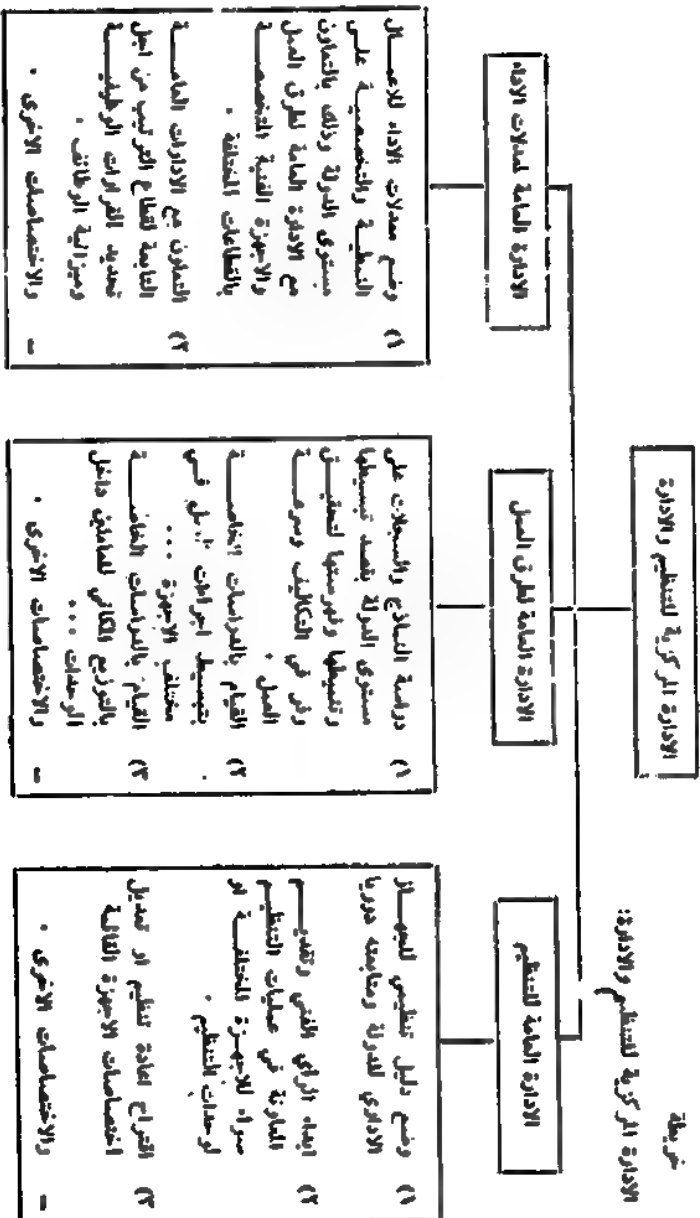 خريطة
الادارة المركزية للتنظيم والادارة:
الادارة المركزية للتنظيم والادارة
الادارة العامة للتنظيم
١) وضع دليل تنظيمي للجهــاز
الاداري للدولة ومتابعته دوريا
٢) ابداء الرأي الفني وتقديـــم
المعاونة في عمليات التنظيم
سواء للاجهـزة المختلفــة او
لوحدات التنظيم .
٣) اقتراح اعادة تنظيم او تعديل
اختصاصات الاجهزة القائمة
ــ والاختصاصات الاخرى .
الادارة العامة لطرق العمل
١) دراسة النماذج والسجلات على
مستوى الدولة بقصد تبسيطها
وتنميطها وفهرستها لتحقيــق
وفر في التكاليف وسرعـــة
العمل .
٢) القيام بالدراسات الخاصـــة
بتبسيط اجراءات العمل فــي
مختلف الاجهزة ...
٣) القيام بالدراسات الخاصــة
بالتوزيع المكاني للعاملين داخل
الوحدات ...
ــ والاختصاصات الاخرى .
الادارة العامة لمعدلات الاداء
١) وضع معدلات الاداء للاعمــال
النمطيـة والتخصصيــة علــى
مستوى الدولة وذلك بالتعاون
مع الادارة العامة لطرق العمل
والاجهزة الفنية المتخصصـة
بالقطاعات المختلفة .
٢) التعاون مع الادارات العامــة
التابعة لقطاع الترتيب من اجل
تحديد القرارات الوظيفيــــة
وميزانية الوظائف .
ــ والاختصاصات الاخرى .